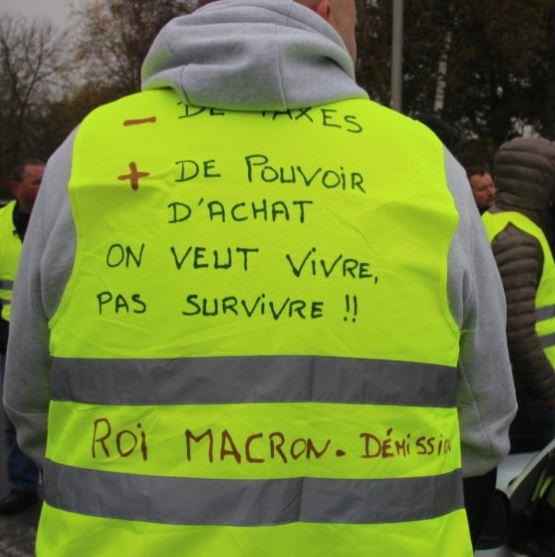 - DE TAXES
+ DE POUVOIR
D'ACHAT
ON VEUT VIVRE,
PAS SURVIVRE !!
ROI MACRON. DÉMISSION